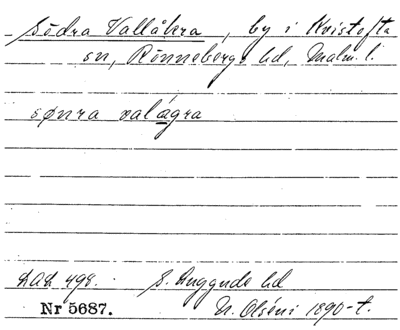 Södra Vallåkra, by i Kvistofta
sn, Rönnebergs hd, Malm. l.
sønra valågra
S. Luggude hd
Nr 5687. N. Olséni 1890-t.